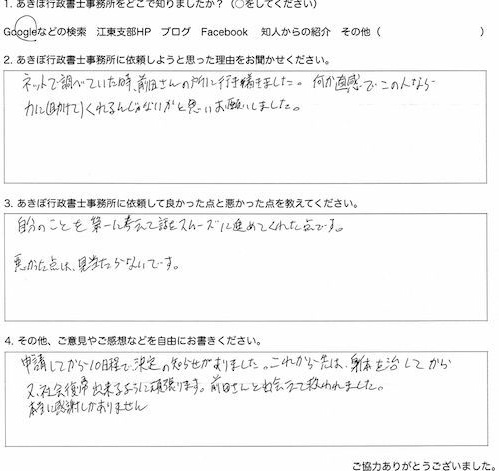 1. あきぼ行政書士事務所をどこで知りましたか？（○をしてください）
Googleなどの検索　江東支部HP　ブログ　Facebook　知人からの紹介　その他（　　　　　　　）
2. あきぼ行政書士事務所に依頼しようと思った理由をお聞かせください。
ネットで調べていた時、前田さんの所に行き着きました。何か直感でこの人なら
力に(助けて)くれるんじゃないかと思いお願いしました。
3. あきぼ行政書士事務所に依頼して良かった点と悪かった点を教えてください。
自分のことを第一に考えて話をスムーズに進めてくれた点です。
悪かった点は、見当たらないです。
4. その他、ご意見やご感想などを自由にお書きください。
申請してから10日程で決定の知らせがありました。これから先は、身体を治してから
又、社会復帰出来るように頑張ります。前田さんと出会えて救われました。
本当に感謝しかありません
ご協力ありがとうございました。